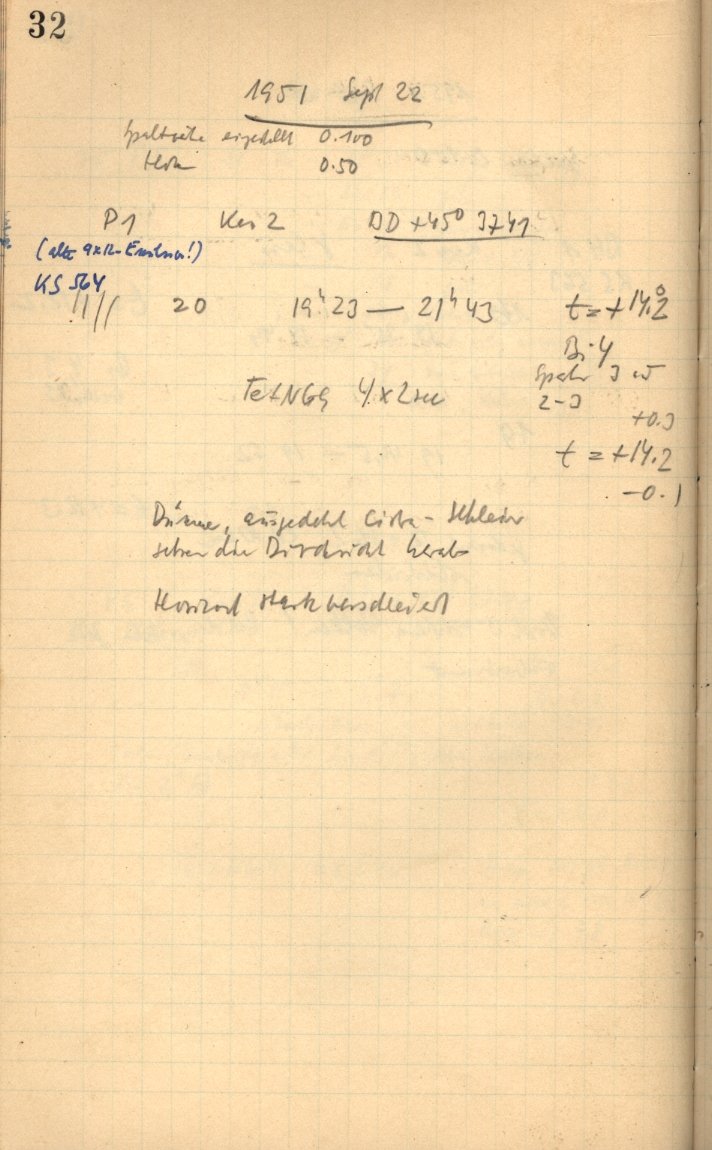 32
1951 Sept 22
Spaltweite eingestellt 0.100
Höhe 0.50
P1 Kas 2 BD +45° 3741
(alte 9x12-Emulsion!)
KS 564
20 19ʰ23 — 21ʰ43 t = +14.°2
B: 4
Spalt 3
2-3
+0.3
Fe+NGG 4x2sec
t = +14.2
-0.1
Dünne, ausgedehnte Cirrus-Schleier
setzen die Durchsicht herab
Horizont stark verschleiert